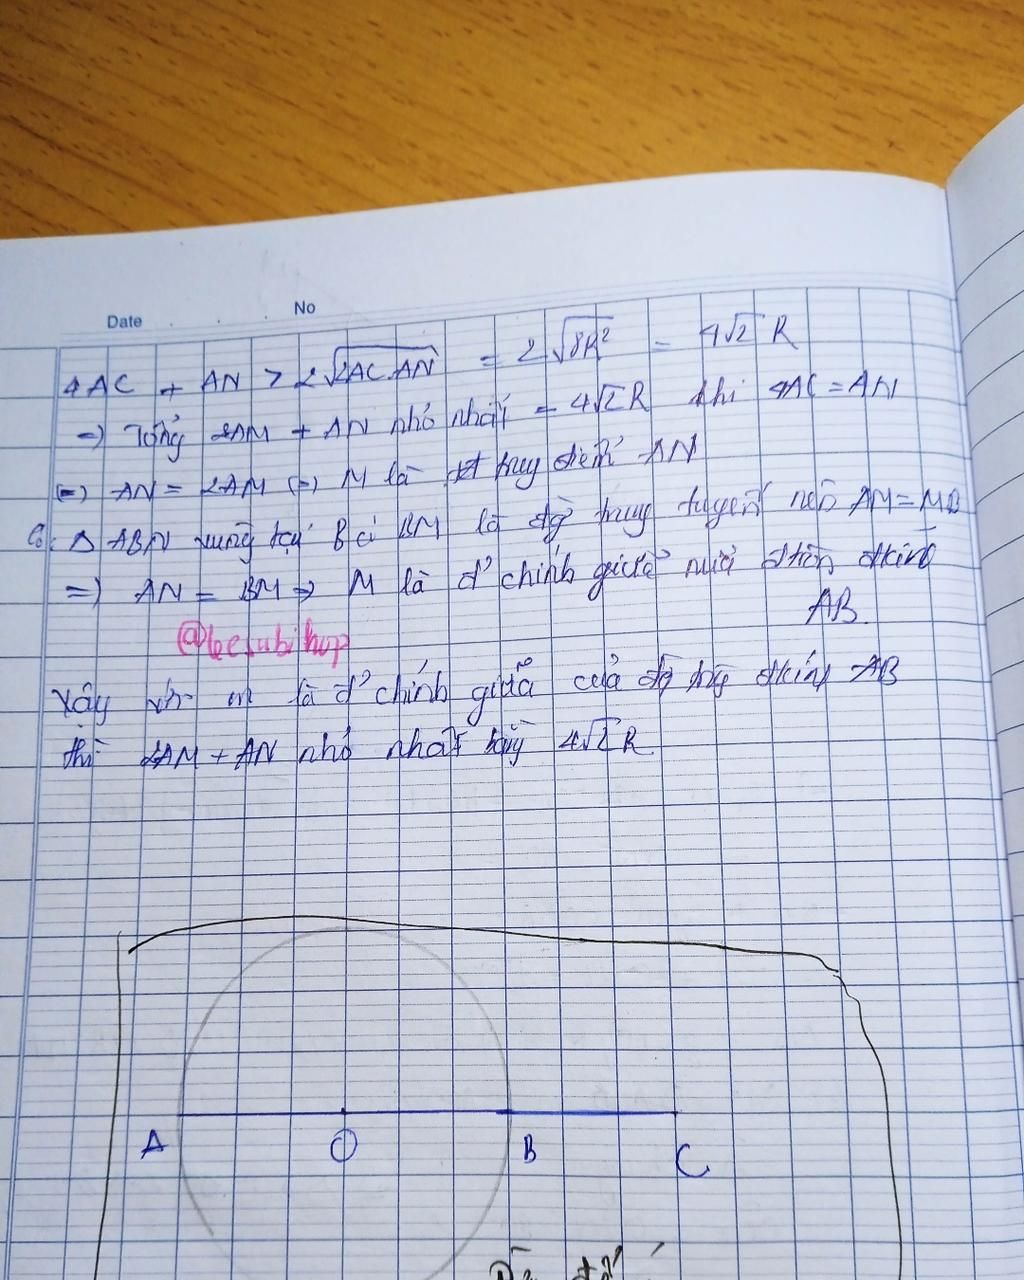 Date No
2AC + AN > 2√2AC.AN = 2√8R² = 4√2 R
=) Tổng 2AM + AN nhỏ nhất = 4√2 R khi 2AC = AN
(=) AN = 2AM (=) M là điểm AN
Có: Δ ABN vuông tại B có BM là đg trung tuyến nên AM = MB
=) AN = BM => M là đ' chính giữa nửa đkính
AB.
@leesubihop
Vậy với m là đ' chính giữa của đg đkính AB
thì 2AM + AN nhỏ nhất bằng 4√2 R
A O B C